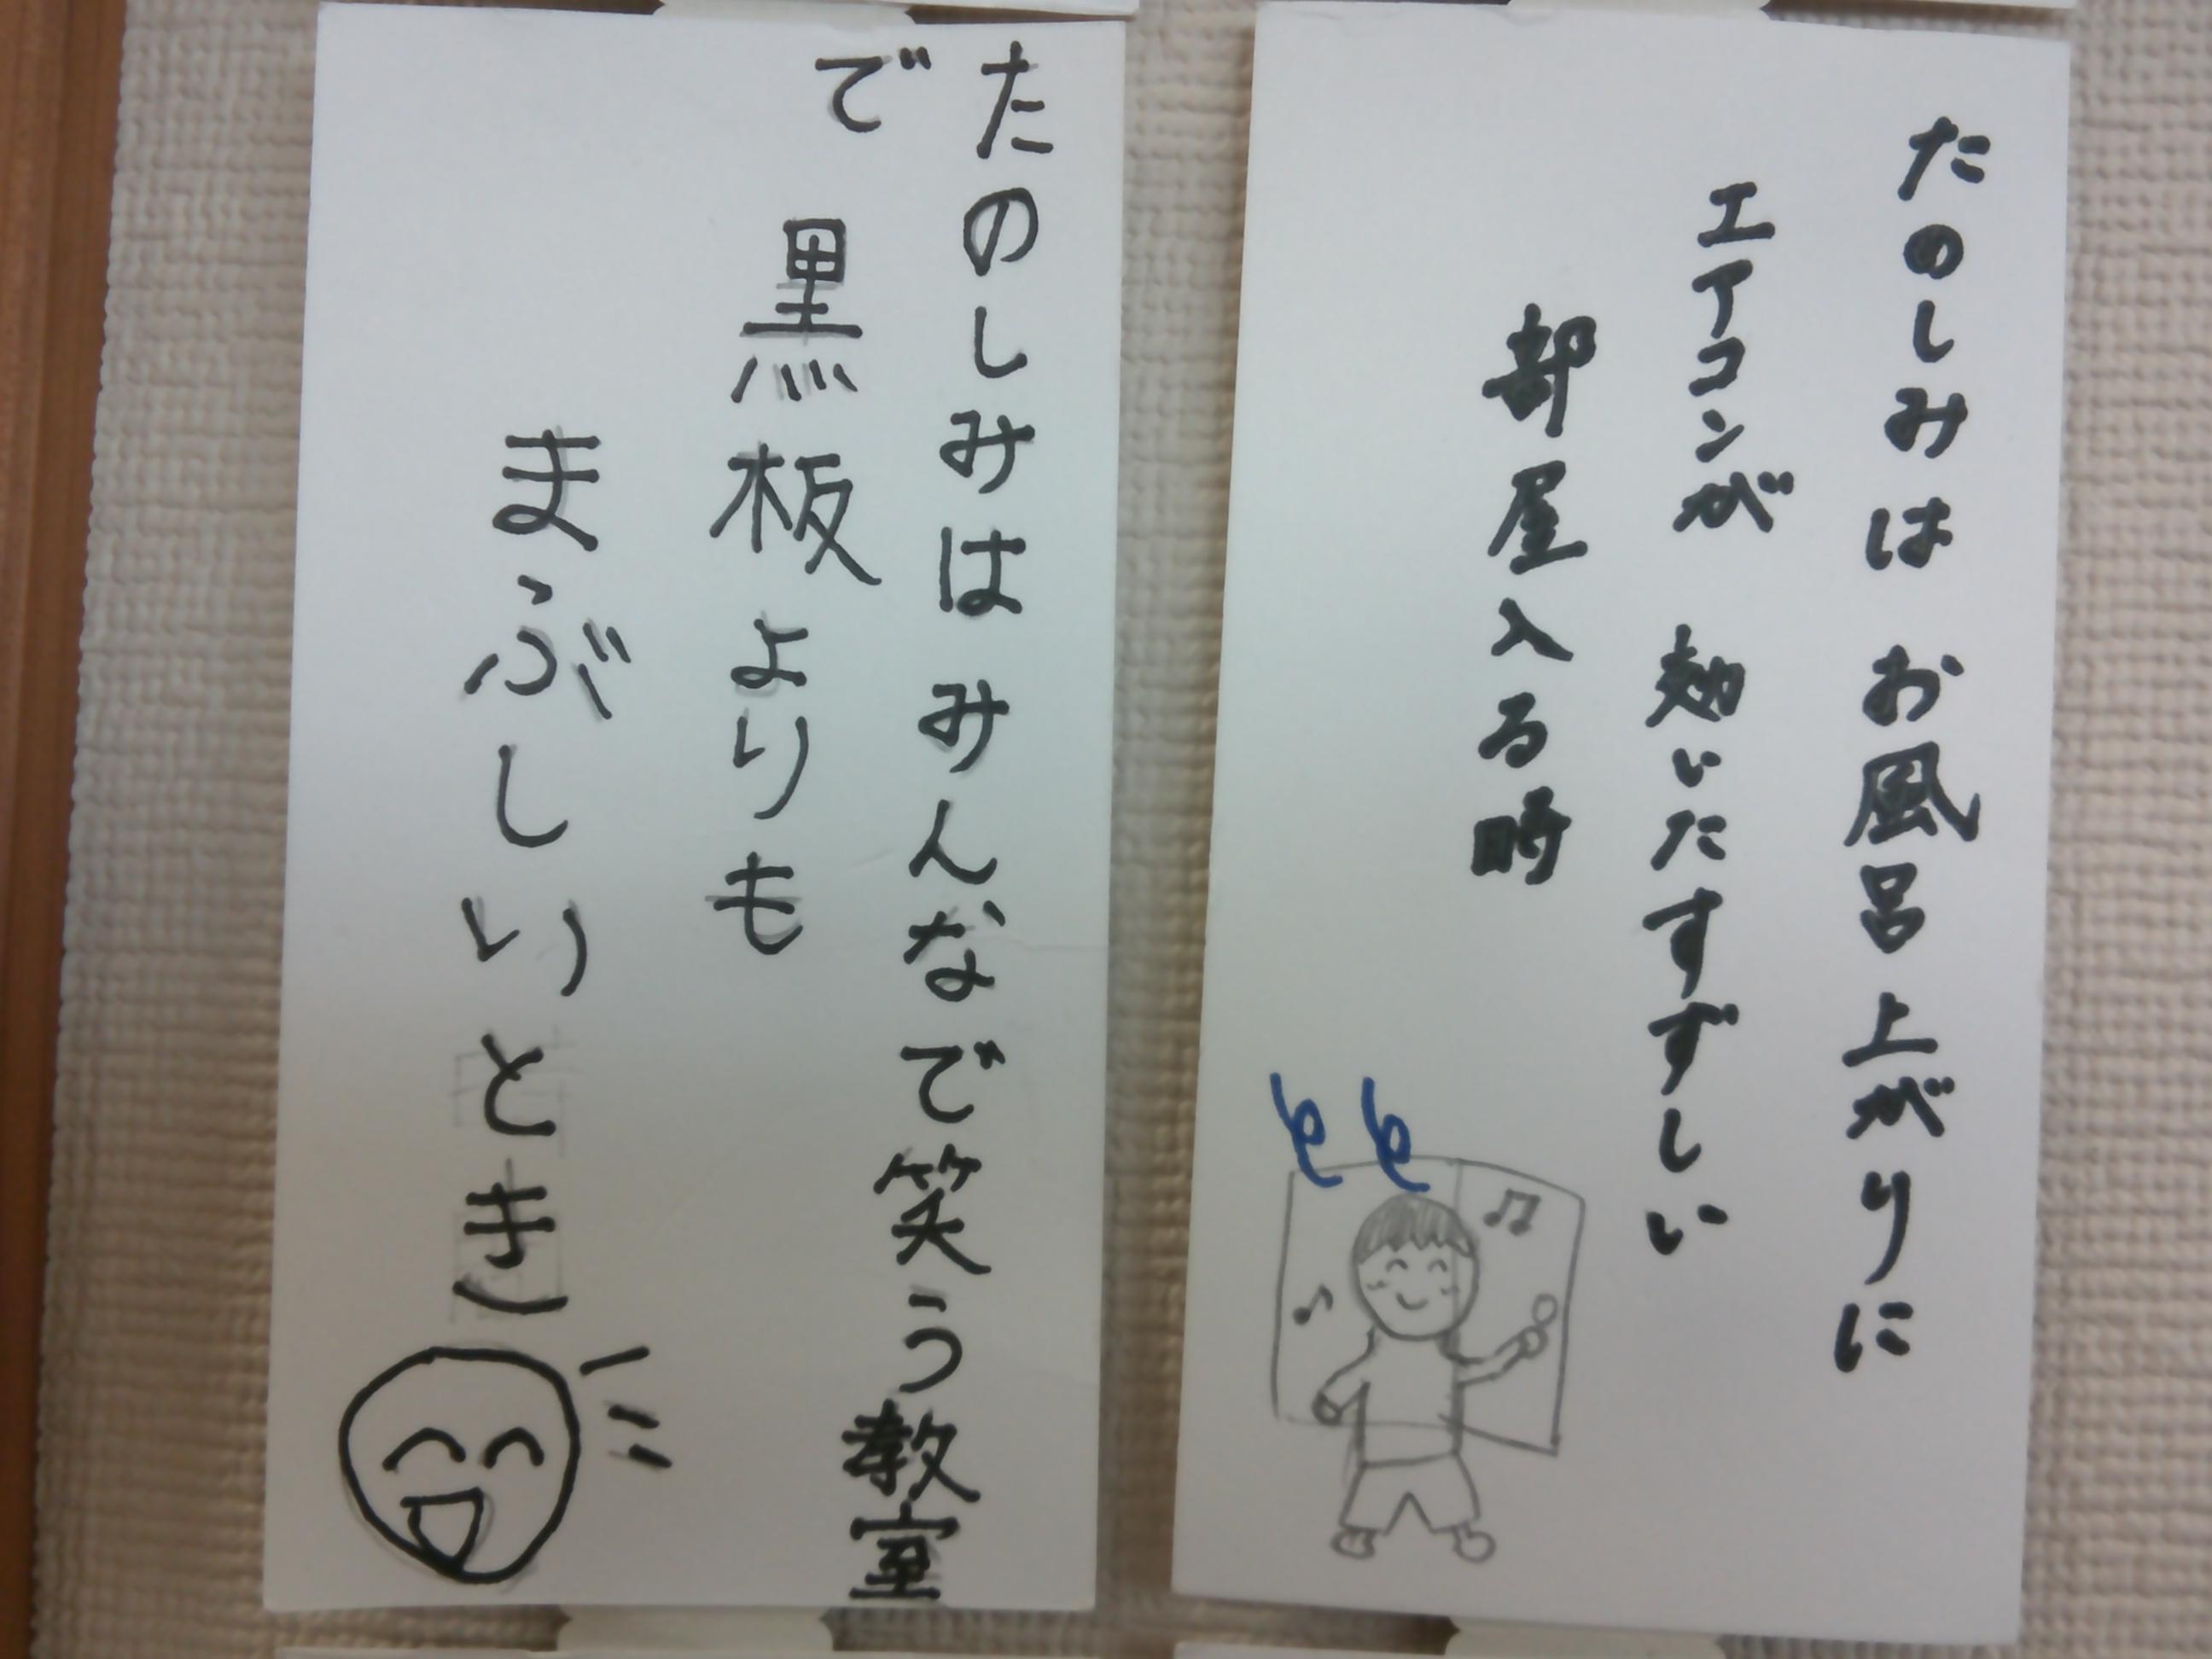 たのしみは お風呂上がりに
エアコンが 効いたすずしい
部屋入る時
たのしみは みんなで笑う教室
で 黒板よりも
まぶしいとき